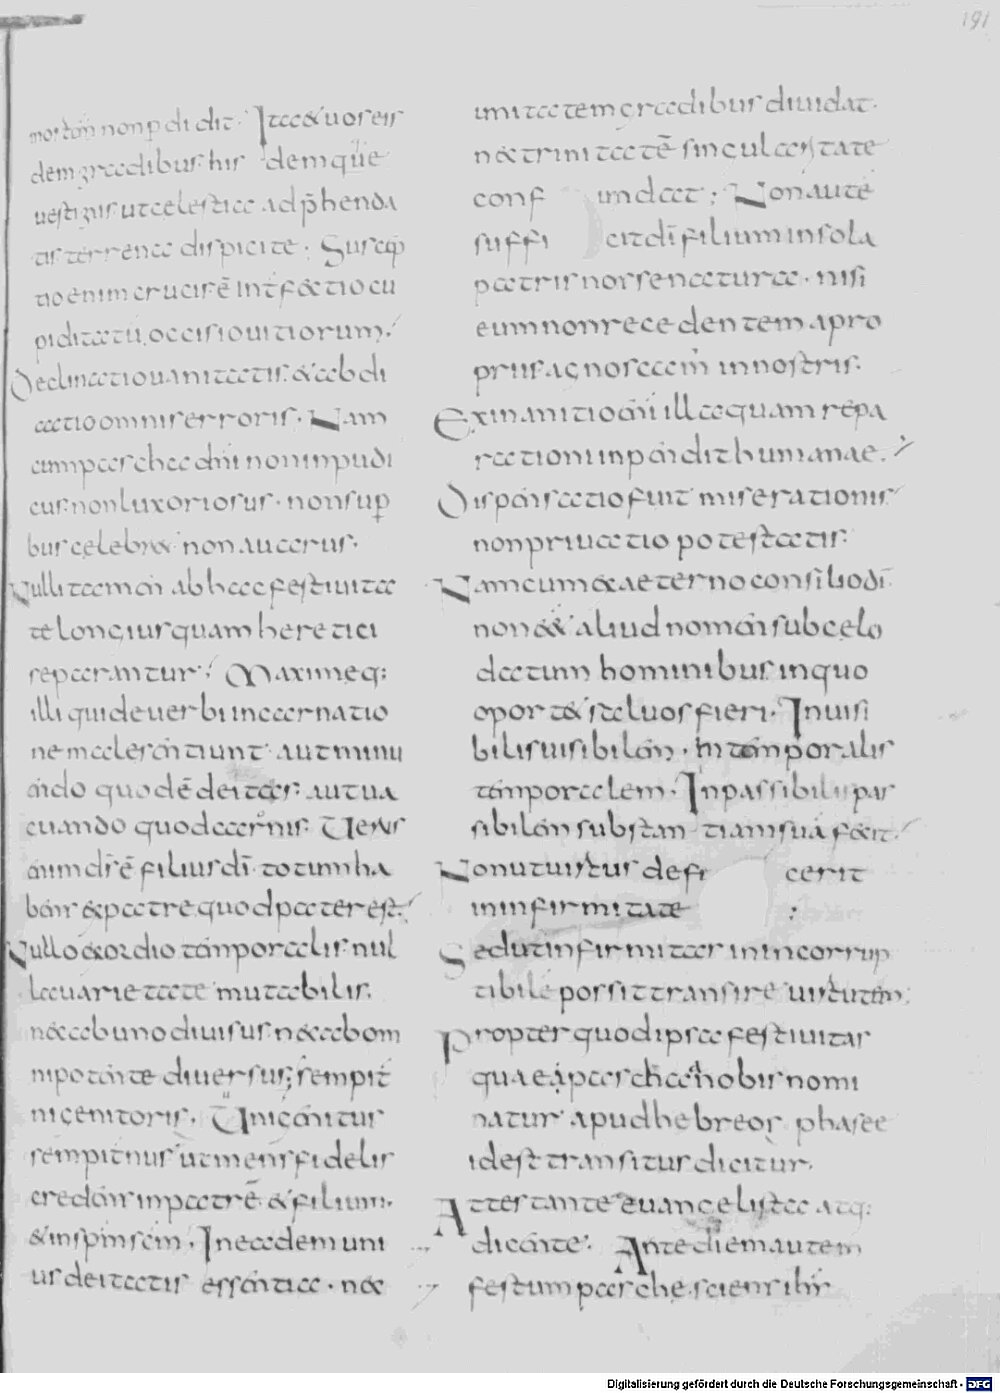 191
mortem non p̄didit. Ita & uos eis
dem gradibus his demque
uestigiis ut celestia adp̄henda
tis terrena dispicite. Suscep
tio enim crucis ē int̄f&tio cu
piditatū, occisio uitiorum,
declinatio uanitatis. & abdi
catio omnis erroris. Nam
cum pascha dn̄i non inpudi
cus. non luxoriosus. non sup̄
bus celebr& non auarus.
Nulli tamen ab hac festiuita
te longius quam heretici
separantur; Maximeq;
illi qui de uerbi incarnatio
ne male sentiunt. aut minu
endo quod ē deitatis. aut ua
cuando quod carnis. Uerus
enim dr̄ē filius dī. totum ha
bens & patre quod pater est.
Nullo exordio temporalis. nul
la uarietate mutabilis.
n& ab uno diuisus. n& ab om
nipotente diuersus; sempit̄
ni genitoris. Unigenitus
sempit̄nus ut mens fidelis
credens in patrē. & filium.
& in sp̄m sc̄m. In eadem uni
us deitatis essentia. n&
unitatem gradibus diuidat.
n& trinitatē singularitate
conf undat; Non autē
suffi cit dī filium in sola
patris nosse natura. nisi
eum non recedentem a pro
priis. agnoscam̄ in nostris.
Exinanitio em̄ illa quam repa
rationi inpendit humanae.
Dispensatio fuit miserationis
non priuatio potestatis.
Nam cum & aeterno consilio dī
non e& aliud nomen sub celo
datum hominibus. in quo
oport& saluos fieri. Inuisi
bilis uisibilem. Intemporalis
temporalem. Inpassibilis pas
sibilem substan tiam suā fecit.
Non ut uirtus defi cerit
in infirmitate ;
Sed ut infirmitas in incorrup
tibilē possit transire uirtutem;
Propter quod ipsa festiuitas
quae a pascha nobis nomi
natur. apud hebreos phase
id est transitus dicitur.
Attestante euangelista atq;
dicente. Ante diem autem
festum pasche. sciens ih̄s
Digitalisierung gefördert durch die Deutsche Forschungsgemeinschaft - DFG